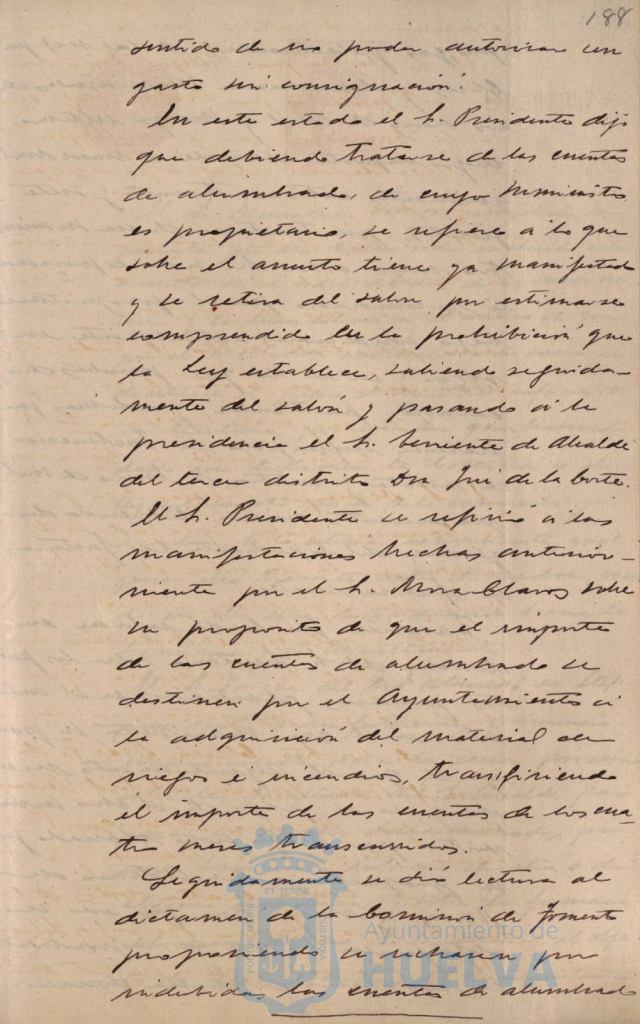 188
sentido de no poder autorizar un
gasto sin consignación.
En este estado el Sr. Presidente dijo
que debiendo tratarse de las cuentas
de alumbrado, de cuyo suministro
es propietario, se refiere á lo que
sobre el asunto tiene ya manifestado
y se retira del salon por estimarse
comprendido en la prohibición que
la Ley establece, saliendo seguida-
mente del salón y pasando á la
presidencia el Sr. Teniente de Alcalde
del tercer distrito Don José de la Corte.
El Sr. Presidente se refirió á las
manifestaciones hechas anterior-
mente por el Sr. Mora Claros sobre
su proposito de que el importe
de las cuentas de alumbrado se
destinen por el Ayuntamiento á
la adquisición del material de
riegos é incendios, transfiriendo
el importe de las cuentas de los cua-
tro meses transcurridos.
Seguidamente se dió lectura al
dictamen de la Comisión de Fomento
proponiendo se rechacen por
indebidas las cuentas de alumbrado
Ayuntamiento de
HUELVA